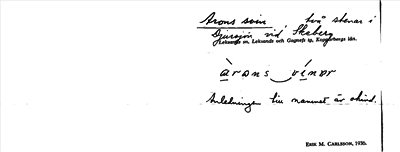 Arons svin två stenar i
Djursjön vid Skeberg
Leksands sn, Leksands och Gagnefs tp, Kopparbergs län.
àrons svínər
Anledningen till namnet är okänd.
ERIK M. CARLSSON, 1930.